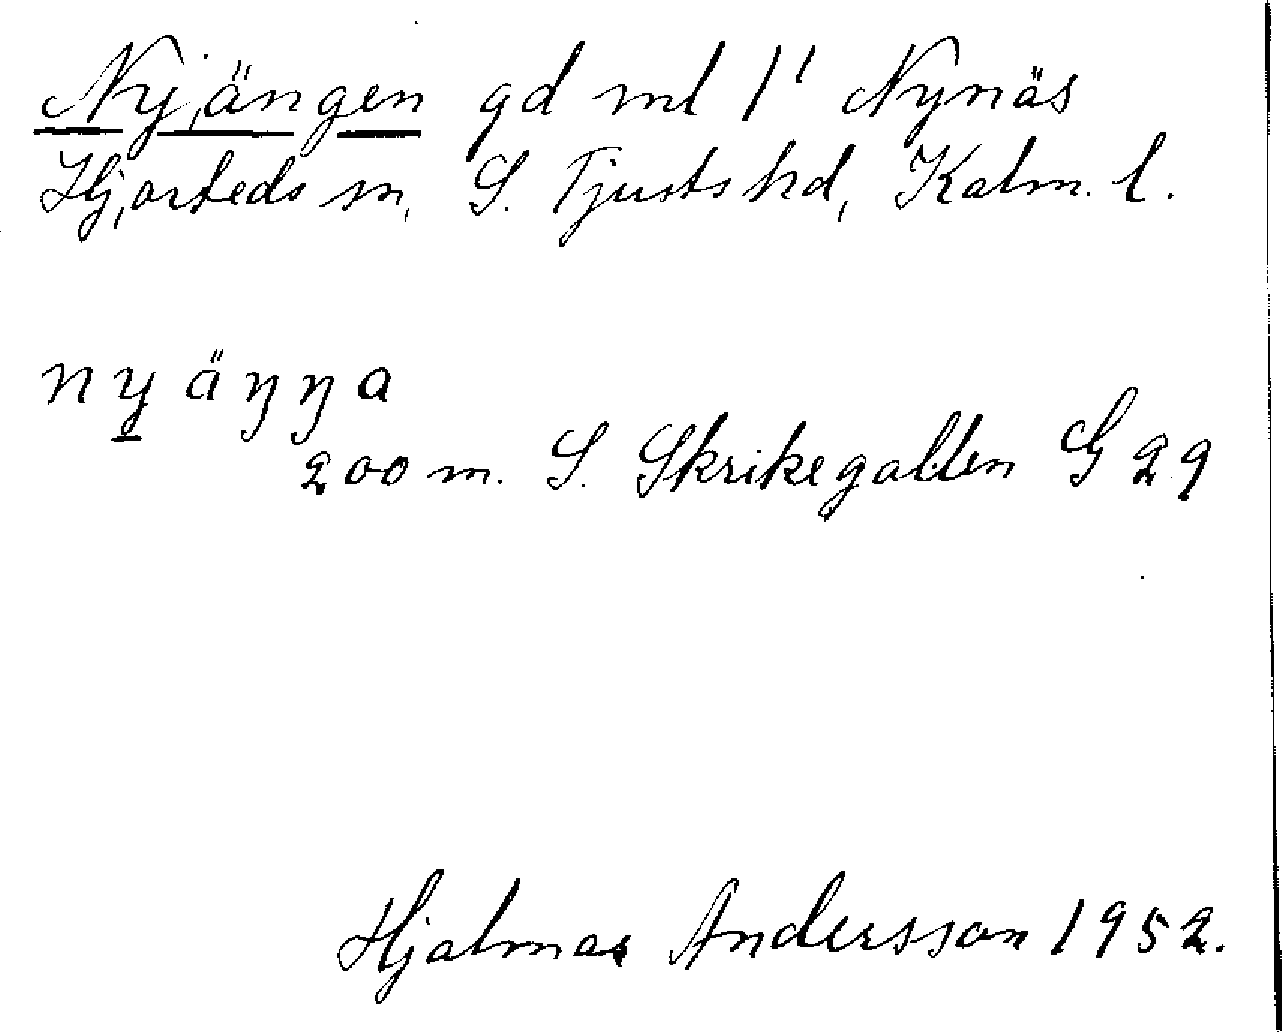 Nyängen gd ml 1¹ Nynäs
Hjorteds sn, S. Tjusts hd, Kalm. l.
ny̲äŋŋa
200 m. S. Skrikegallen G 29
Hjalmar Andersson 1952.